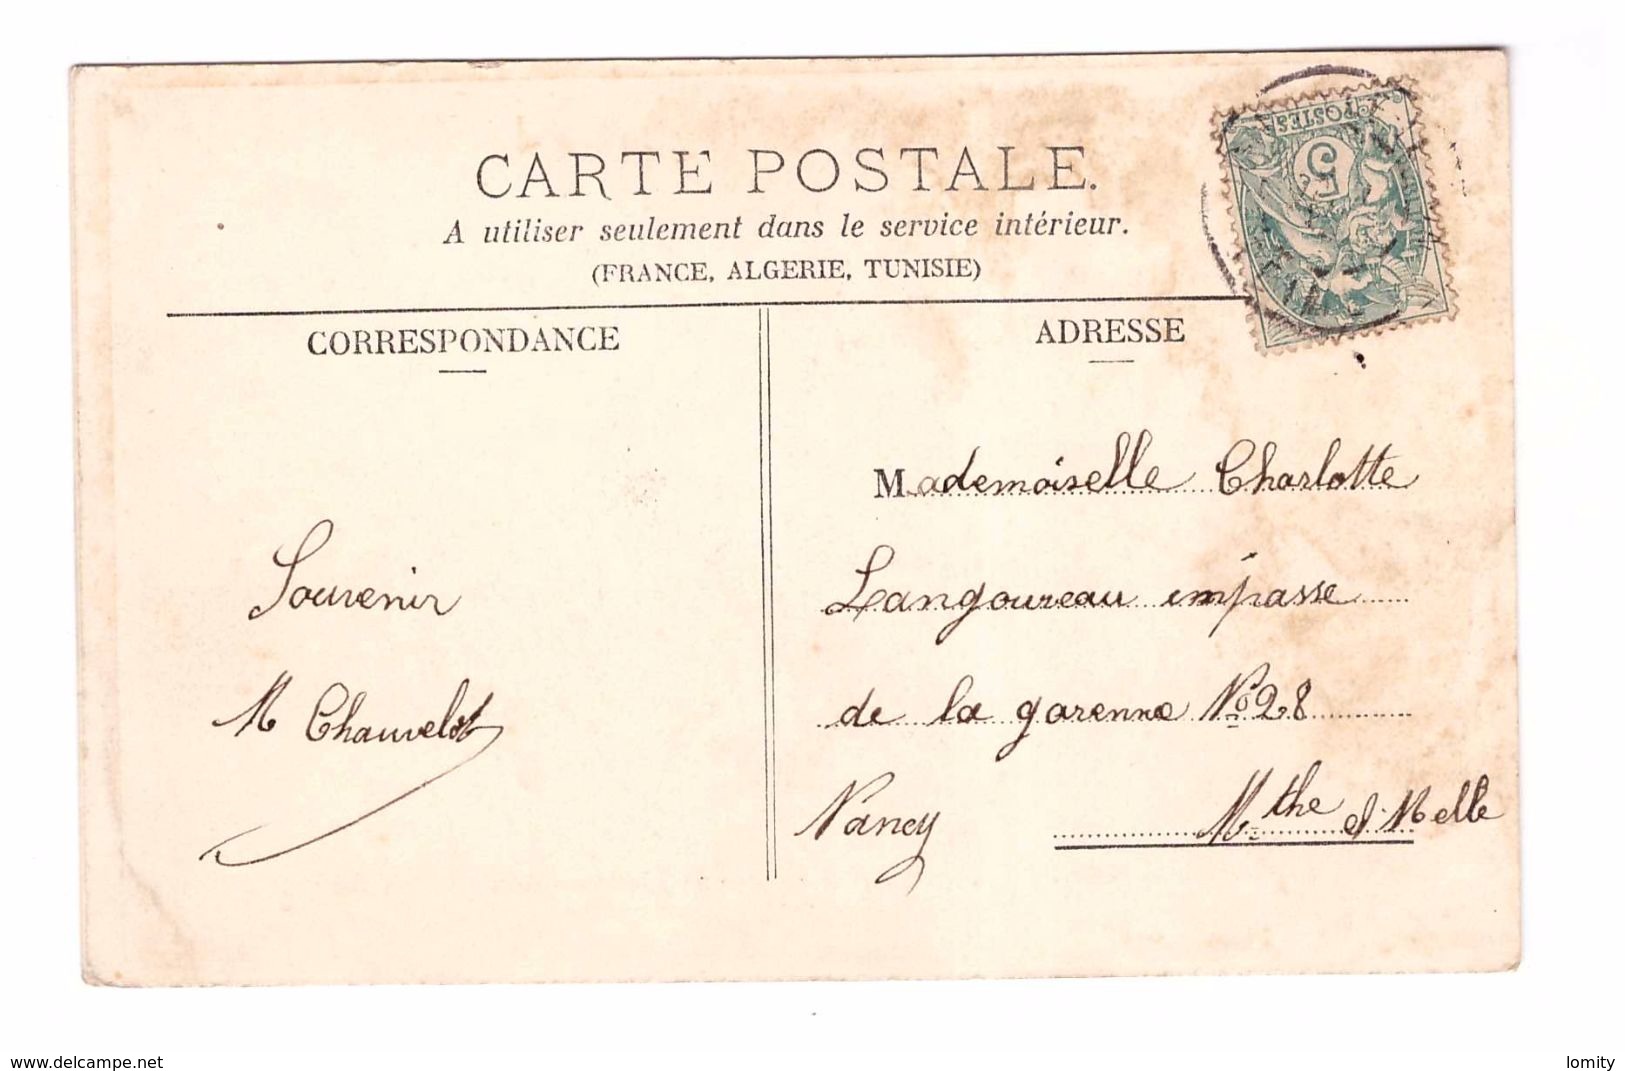 CARTE POSTALE.
A utiliser seulement dans le service intérieur.
(FRANCE, ALGERIE, TUNISIE)
CORRESPONDANCE
ADRESSE
POSTES
5
Souvenir
M Chauvelot
Mademoiselle Charlotte
Langoureau impasse
de la garenne No 28
Nancy
Mthe et Melle
www.delcampe.net
lomity